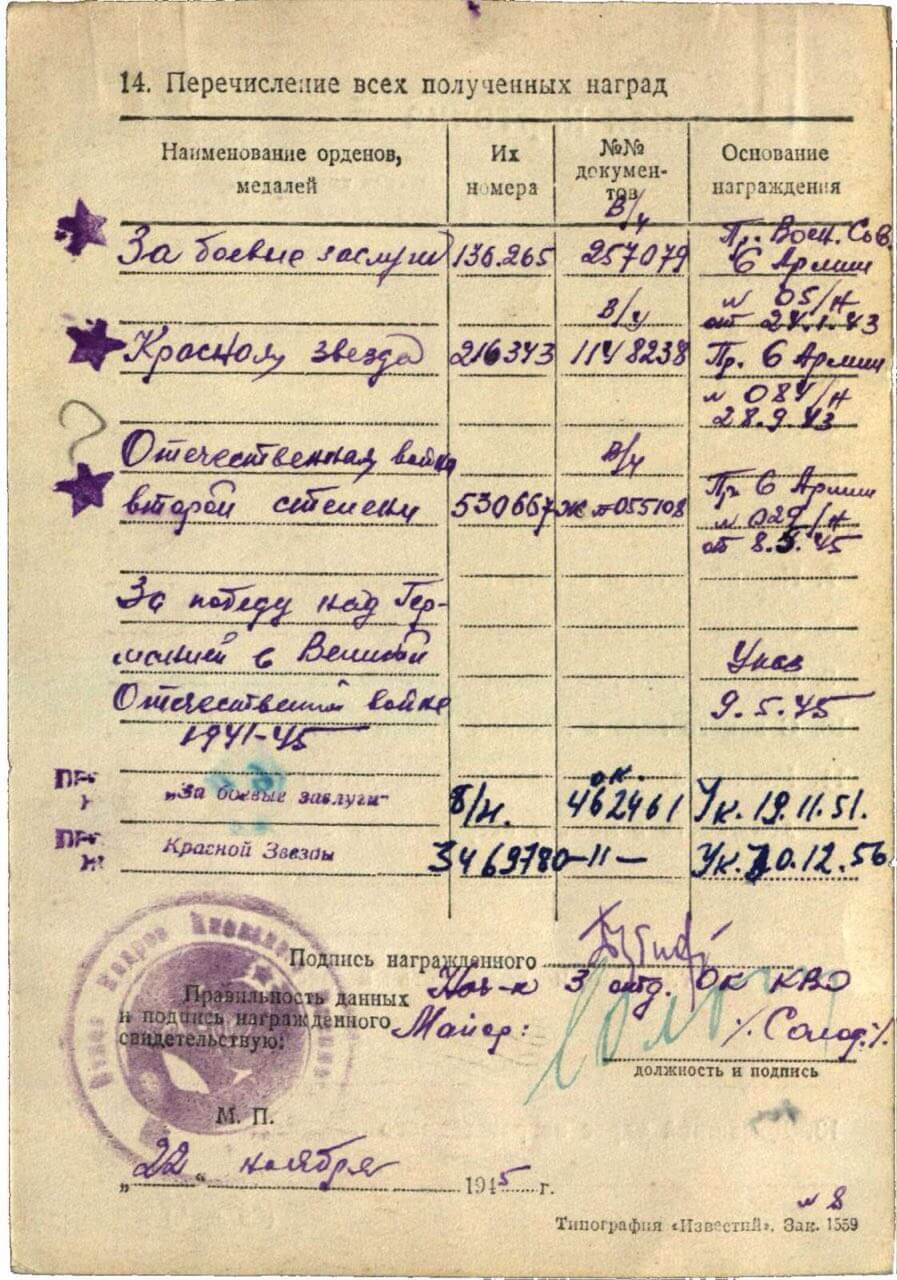 14. Перечисление всех полученных наград
Наименование орденов, медалей
Их номера
№№ документов
Основание награждения
В/ч
За боевые заслуги 136.265 257079 Пр. Воен. Сов.
6 Армии
В/ч № 05/н
от 24.1.43
Красная звезда 216343 1148238 Пр. 6 Армии
№ 084/н
28.9.43
Отечественная война В/ч
второй степени 530667 055108 Пр. 6 Армии
№ 029/н
от 8.5.45
За победу над Гер-
манией в Великой Указ
Отечественной войне 9.5.45
1941-45
ок.
„За боевые заслуги" б/н. 462461 Ук. 19.11.51.
Красной Звезды 3469780 -11- Ук. 12.56
Подпись награжденного
Правильность данных Нач-к 3 отд. ОК КВО
и подпись награжденного Майор:
свидетельствую:
должность и подпись
М. П.
„22" ноября 1945 г.
№ 8
Типография «Известий». Зак. 1559